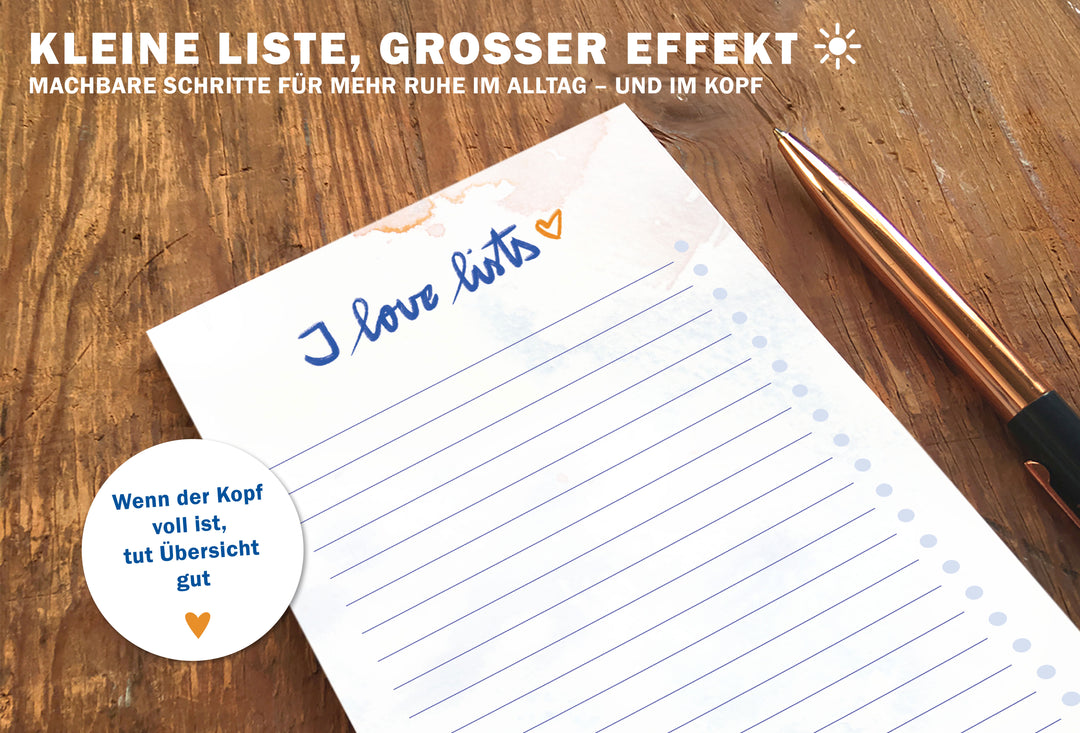 KLEINE LISTE, GROSSER EFFEKT
MACHBARE SCHRITTE FÜR MEHR RUHE IM ALLTAG – UND IM KOPF
I love lists
Wenn der Kopf
voll ist,
tut Übersicht
gut